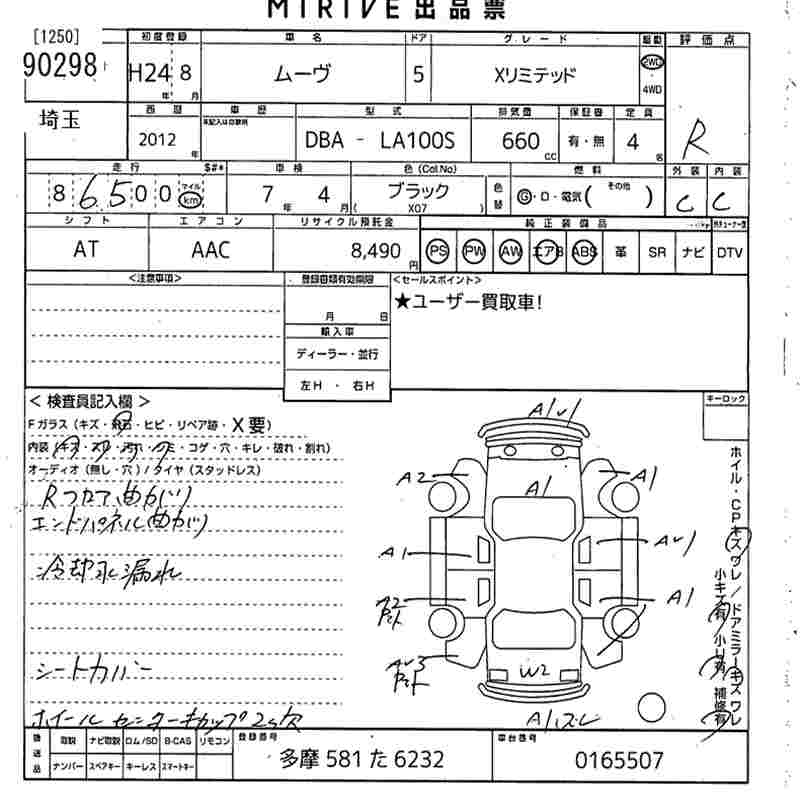 MIRIVE出品票
[1250] 初度登録 車名 ドア グレード 駆動 評価点
90298 H24 8 ムーヴ 5 Xリミテッド 2WD
年 月 4WD
埼玉 西暦 車歴 型式 排気量 保証書 定員
未記入は自家用
2012 DBA - LA100S 660 有・無 4 R
年 CC 名
走行 $#* 車検 色(Col.No) 燃料 外装 内装
8 6500 マイル km 7 4 ブラック 色替 G・D・電気( その他 ) C C
年 月 ( X07 )
シフト エアコン リサイクル預託金 純正装備品
AT AAC 8,490 PS PW AW エアB ABS 革 SR ナビ DTV
円
<注意事項> 登録書類有効期限 <セールスポイント>
★ユーザー買取車!
月 日
輸入車
ディーラー・並行
左H ・ 右H
<検査員記入欄> キーロック
Fガラス(キズ・飛石・ヒビ・リペア跡・X要) A1U1
内装(キズ・スリ・汚れ・クミ・コゲ・穴・キレ・破れ・割れ)
オーディオ(無し・穴)/タイヤ(スタッドレス)
A2 A1 A1
Rフロア曲がり
エンドパネル曲がり
A1 AU1
冷却水漏れ
A2 A1
AU3
シートカバー W2
ホイールセンターキャップ2ヶ欠 A1ズレ
ホイール・CPキズワレ/ドアミラーキズワレ
小キズ有 小凹有 補修有
後送品 取説 ナビ取説 ロム/SD B-CAS リモコン 登録番号 車台番号
ナンバー スペアキー キーレス スマートキー 多摩 581 た 6232 0165507